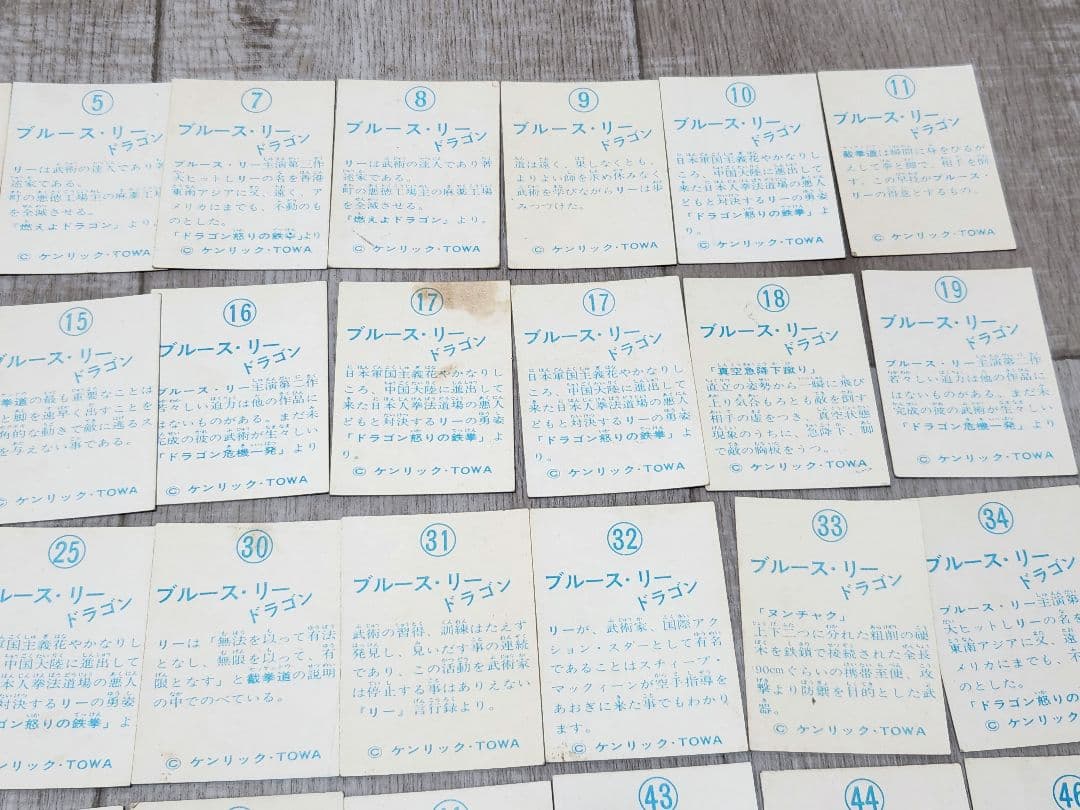 5
ブルース・リー
ドラゴン
リーは武術の達人であり著
述家である。
町の悪徳工場主の麻薬工場
を全滅させる。
『燃えよドラゴン』より。
© ケンリック・TOWA
7
ブルース・リー
ドラゴン
ブルース・リー主演第二作
大ヒットしリーの名を香港
東南アジアに又、遠く、ア
メリカにまでも、不動のも
のとした。
「ドラゴン怒りの鉄拳」より
© ケンリック・TOWA
8
ブルース・リー
ドラゴン
リーは武術の達人であり著
述家である。
町の悪徳工場主の麻薬工場
を全滅させる。
『燃えよドラゴン』より。
© ケンリック・TOWA
9
ブルース・リー
ドラゴン
道は遠く、果しなくとも、
よりよい師を求め休みなく
武術を学びながらリーは歩
みつづけた。
© ケンリック・TOWA
10
ブルース・リー
ドラゴン
日本軍国主義花やかなりし
ころ、中国大陸に進出して
来た日本人拳法道場の悪人
どもと対決するリーの勇姿
「ドラゴン怒りの鉄拳」よ
り
© ケンリック・TOWA
11
ブルース・リー
ドラゴン
截拳道は瞬間に身をひるが
えして拳と脚で、相手を倒
す。この早技がブルース・
リーの得意とするもの。
© ケンリック・TOWA
15
ブルース・リー
ドラゴン
拳道の最も重要なことは
と脚を速早く出すことを
角的な動きで敵に逃るス
を与えない事である。
© ケンリック・TOWA
16
ブルース・リー
ドラゴン
ブルース・リー主演第二作
若々しい迫力は他の作品に
はないものがある。まだ未
完成の彼の武術が生々しい
「ドラゴン危機一発」より
© ケンリック・TOWA
17
ブルース・リー
ドラゴン
日本軍国主義花やかなりし
ころ、中国大陸に進出して
来た日本人拳法道場の悪人
どもと対決するリーの勇姿
「ドラゴン怒りの鉄拳」よ
り
© ケンリック・TOWA
17
ブルース・リー
ドラゴン
日本軍国主義花やかなりし
ころ、中国大陸に進出して
来た日本人拳法道場の悪人
どもと対決するリーの勇姿
「ドラゴン怒りの鉄拳」よ
り
© ケンリック・TOWA
18
ブルース・リー
ドラゴン
「真空急降下蹴り」
直立の姿勢から一瞬に飛び
上り気合もろとも敵を倒す
相手の虚をつき、真空状態
現象のうちに、急降下、脚
で敵の胸板をうつ。
© ケンリック・TOWA
19
ブルース・リー
ドラゴン
ブルース・リー主演第二作
若々しい迫力は他の作品に
はないものがある。まだ未
完成の彼の武術が生々しい
「ドラゴン危機一発」より
© ケンリック・TOWA
25
ルース・リー
ドラゴン
国主義花やかなりし
中国大陸に進出して
本人拳法道場の悪人
対決するリーの勇姿
ゴン怒りの鉄拳」よ
ンリック・TOWA
30
ブルース・リー
ドラゴン
リーは「無法を以って有法
となし、無限を以って、有
限となす」と截拳道の説明
の中でのべている。
© ケンリック・TOWA
31
ブルース・リー
ドラゴン
武術の習得、訓練はたえず
発見し、見いだす事の連続
であり、この活動を武術家
は停止する事はありえない
『リー』言行録より。
© ケンリック・TOWA
32
ブルース・リー
ドラゴン
リーが、武術家、国際アク
ション・スターとして有名
であることはスティーブ・
マックィーンが空手指導を
あおぎに来た事でもわかり
ます。
© ケンリック・TOWA
33
ブルース・リー
ドラゴン
「ヌンチャク」
上下二つに分れた粗削の硬
木を鉄鎖で接続された全長
90cmぐらいの携帯至便、攻
撃より防禦を目的とした武
器。
© ケンリック・TOWA
34
ブルース・リー
ドラゴン
ブルース・リー主演第
大ヒットしリーの名を
東南アジアに又、遠
メリカにまでも、不
のとした。
「ドラゴン怒りの
© ケンリック・
43
44
46